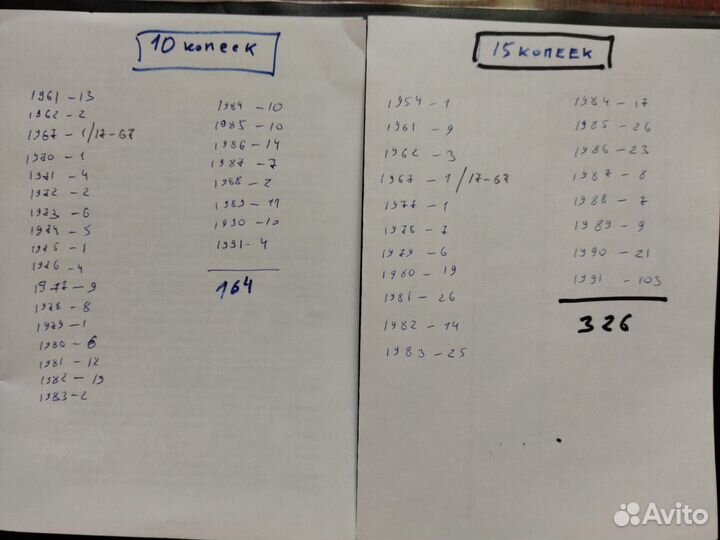 10 копеек
1961 - 13
1962 - 2
1967 - 1/17-67
1970 - 1
1971 - 4
1972 - 2
1973 - 6
1974 - 5
1975 - 1
1976 - 4
1977 - 9
1978 - 8
1979 - 1
1980 - 6
1981 - 12
1982 - 19
1983 - 2
1984 - 10
1985 - 10
1986 - 14
1987 - 7
1988 - 2
1989 - 17
1990 - 10
1991 - 4
164
15 копеек
1954 - 1
1961 - 9
1962 - 3
1967 - 1/17-67
1977 - 1
1978 - 7
1979 - 6
1980 - 19
1981 - 26
1982 - 14
1983 - 25
1984 - 17
1985 - 26
1986 - 23
1987 - 8
1988 - 7
1989 - 9
1990 - 21
1991 - 103
326
Avito